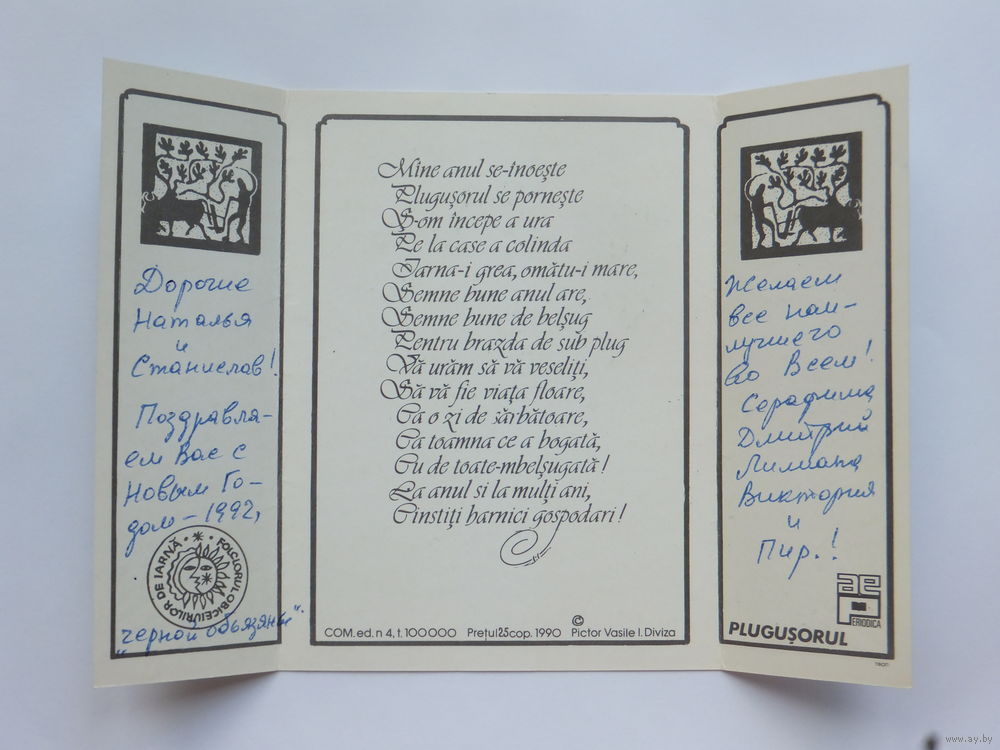 Дорогие
Наталья
и
Станислав!
Поздравля-
ем Вас с
Новым Го-
дом - 1992,
FOLCLORUL OBICEIURILOR DE IARNĂ
"черной обьезяны".
Mîine anul se-înoește
Plugușorul se pornește
S-om începe a ura
Pe la case a colinda
Iarna-i grea, omătu-i mare,
Semne bune anul are,
Semne bune de belșug
Pentru brazda de sub plug
Vă urăm să vă veseliți,
Să vă fie viața floare,
Ca o zi de sărbătoare,
Ca toamna ce a bogată,
Cu de toate-mbelșugată!
La anul si la mulți ani,
Cinstiți harnici gospodari!
COM. ed. n 4, t. 100000 Prețul 25 cop. 1990 © Pictor Vasile I. Diviza
Желаем
все наи-
лучшего
во Всем!
Серафима
Дмитрий
Лилиана
Виктория
и
Пир.!
PERIODICA
PLUGUȘORUL
www.ay.by